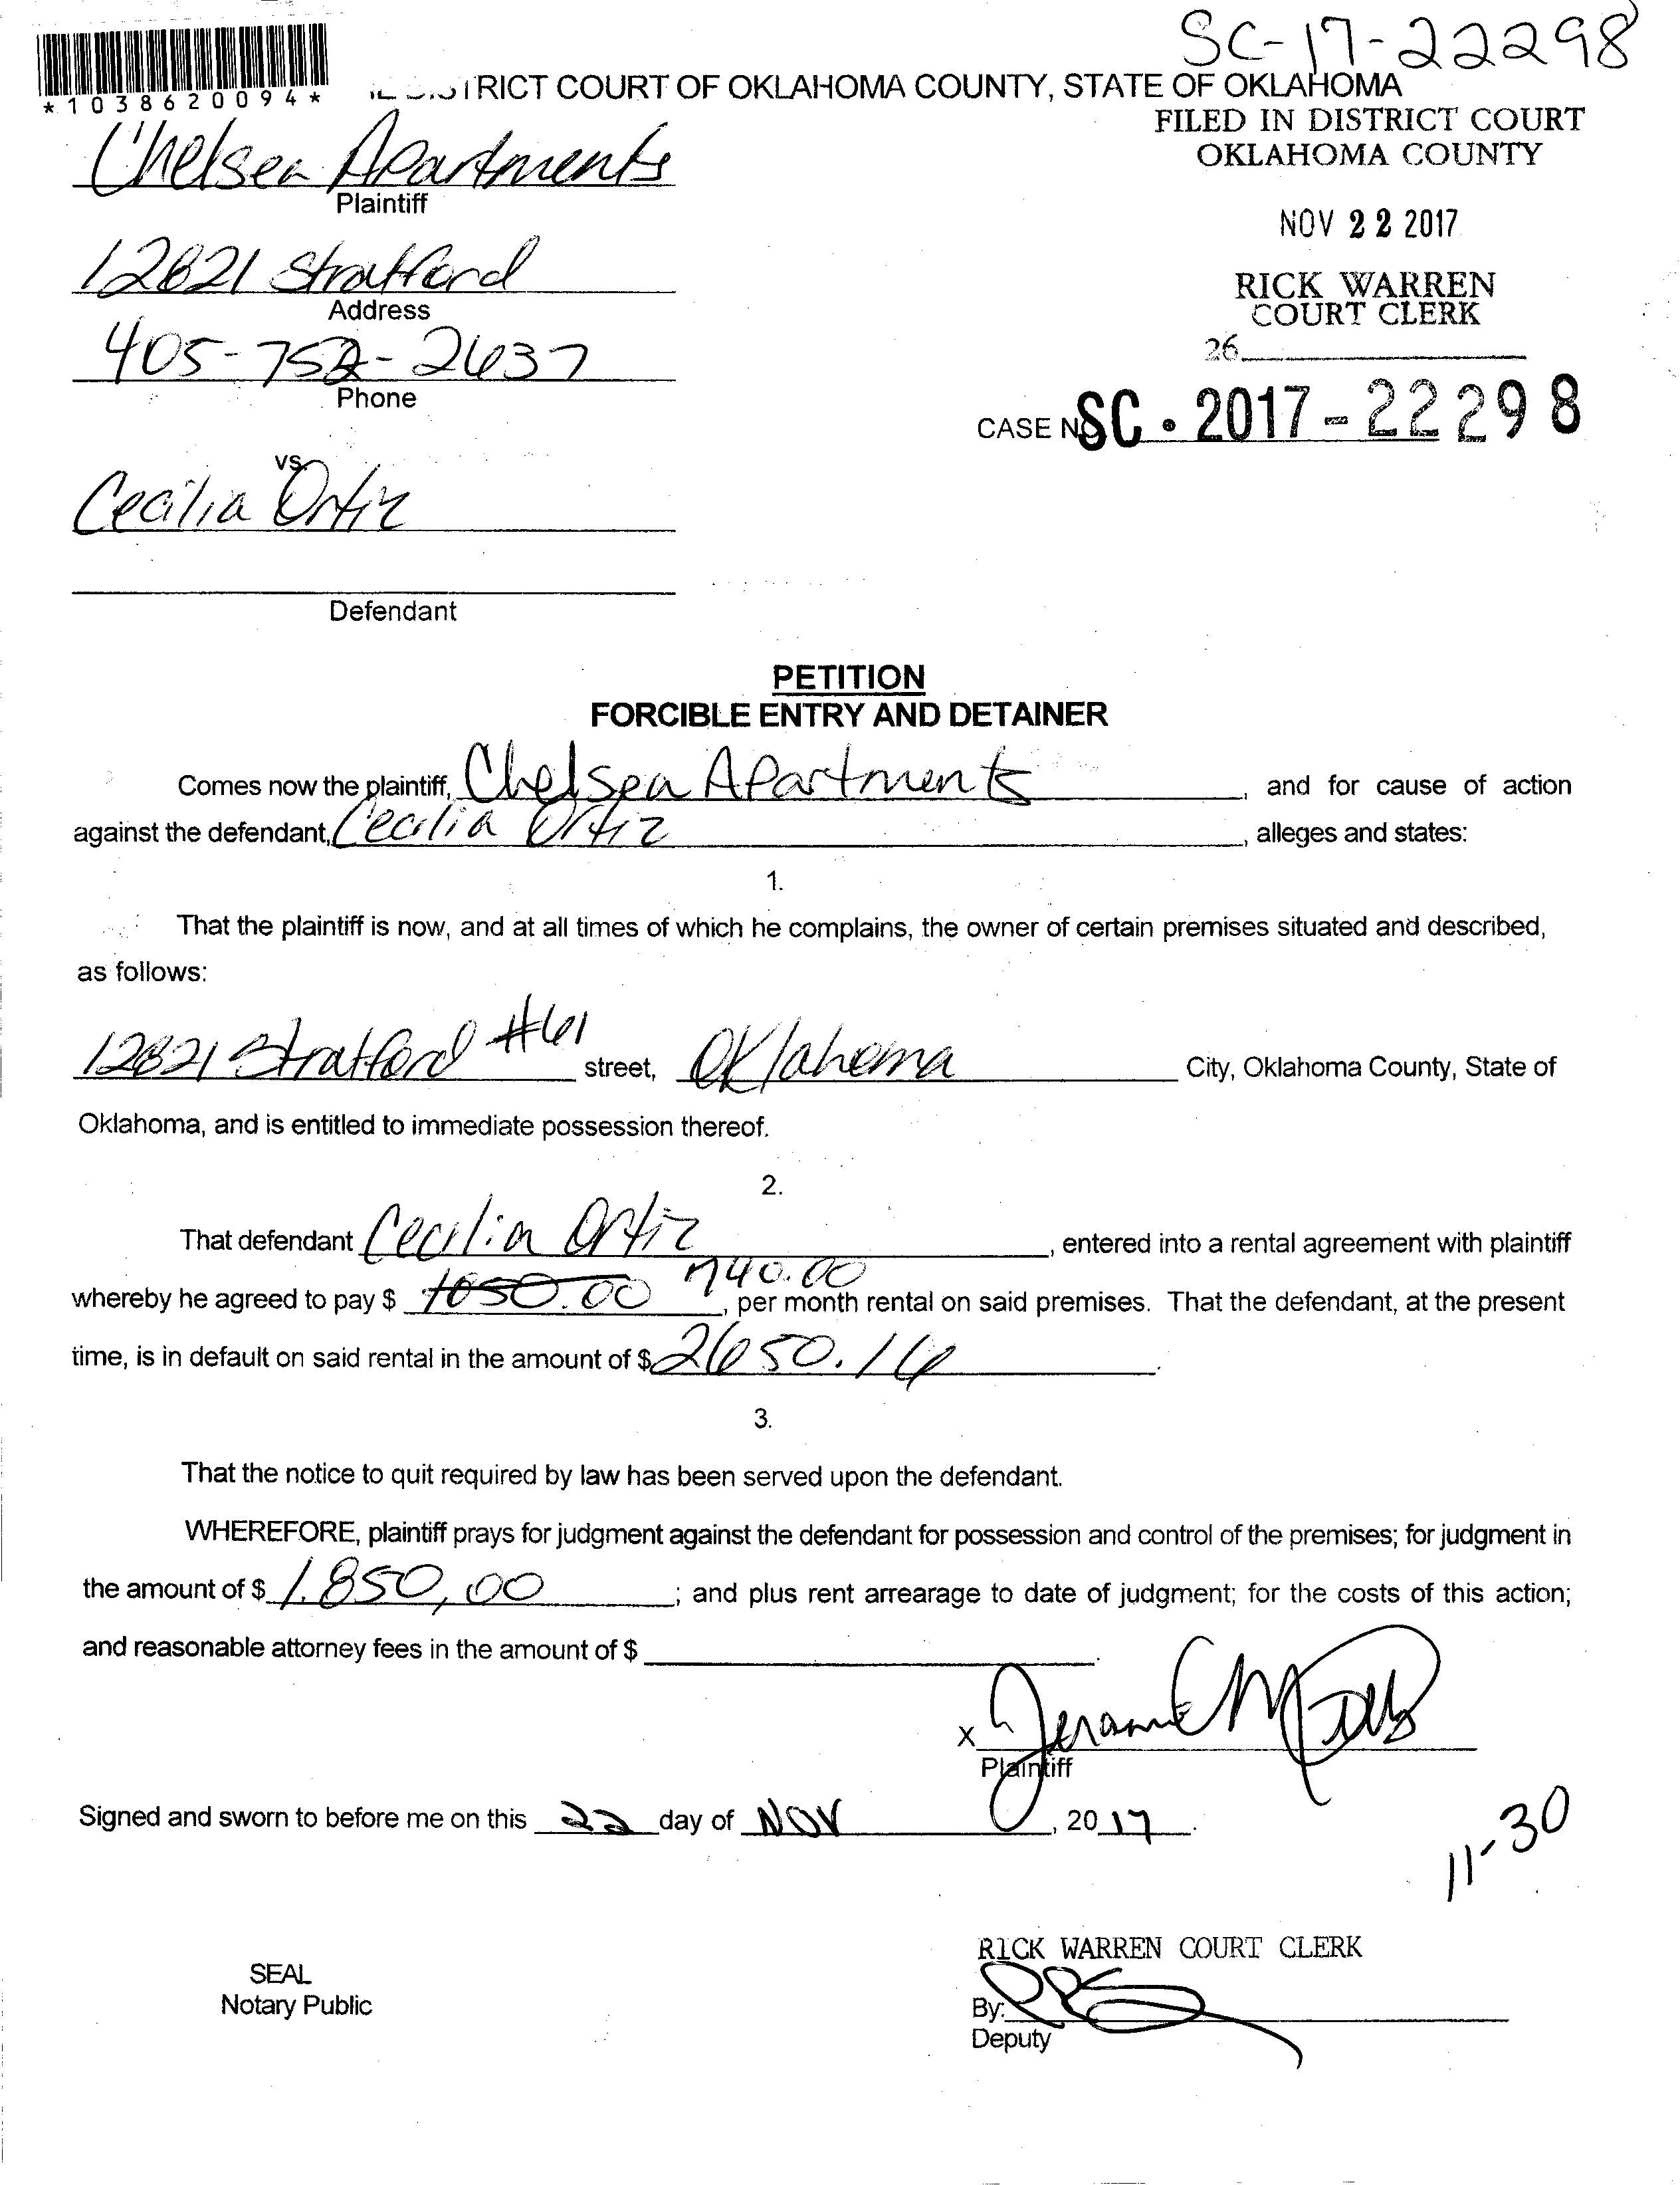 SC-17-22298
*1038620094*
DISTRICT COURT OF OKLAHOMA COUNTY, STATE OF OKLAHOMA
Chelsea Apartments
Plaintiff
FILED IN DISTRICT COURT
OKLAHOMA COUNTY
NOV 22 2017
12821 Stratford
Address
RICK WARREN
COURT CLERK
405-752-2637
Phone
26
CASE NO SC-2017-22298
vs
Cecilia Ortiz
Defendant
PETITION
FORCIBLE ENTRY AND DETAINER
Comes now the plaintiff, Chelsea Apartments, and for cause of action
against the defendant, Cecilia Ortiz, alleges and states:
1.
That the plaintiff is now, and at all times of which he complains, the owner of certain premises situated and described,
as follows:
12821 Stratford #61 street, Oklahoma City, Oklahoma County, State of
Oklahoma, and is entitled to immediate possession thereof.
2.
That defendant Cecilia Ortiz, entered into a rental agreement with plaintiff
whereby he agreed to pay $ 1050.00 740.00, per month rental on said premises. That the defendant, at the present
time, is in default on said rental in the amount of $ 2650.16.
3.
That the notice to quit required by law has been served upon the defendant.
WHEREFORE, plaintiff prays for judgment against the defendant for possession and control of the premises; for judgment in
the amount of $ 1.850,00; and plus rent arrearage to date of judgment; for the costs of this action;
and reasonable attorney fees in the amount of $
X
Plaintiff
Signed and sworn to before me on this 22 day of NOV, 2017.
11-30
RICK WARREN COURT CLERK
SEAL
Notary Public
By:
Deputy